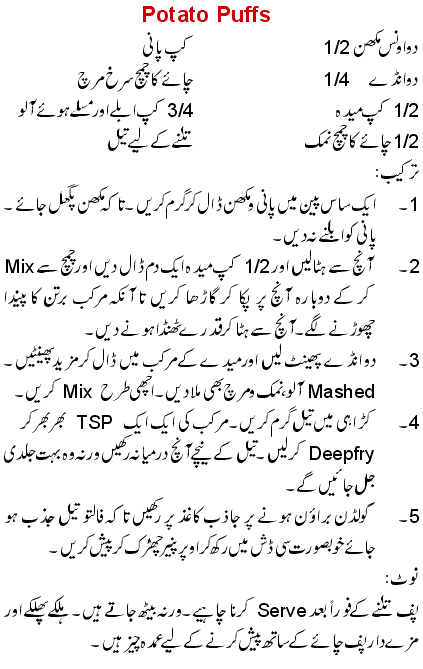 Potato Puffs
دو اونس مکھن 1/2 کپ پانی
دو انڈے 1/4 چائے کا چمچ سرخ مرچ
1/2 کپ میدہ 3/4 کپ ابلے اور مسلے ہوئے آلو
1/2 چائے کا چمچ نمک تلنے کے لیے تیل
ترکیب:
1۔ ایک ساس پین میں پانی و مکھن ڈال کر گرم کریں۔ تاکہ مکھن پگھل جائے۔
پانی کو ابلنے نہ دیں۔
2۔ آنچ سے ہٹالیں اور 1/2 کپ میدہ ایک دم ڈال دیں اور چمچ سے Mix
کر کے دوبارہ آنچ پر پکا کر گاڑھا کریں تاآنکہ مرکب برتن کا پیندا
چھوڑنے لگے۔ آنچ سے ہٹا کر قدرے ٹھنڈا ہونے دیں۔
3۔ دو انڈے پھینٹ لیں اور میدے کے مرکب میں ڈال کر مزید پھینٹیں۔
Mashed آلو، نمک و مرچ بھی ملا دیں۔ اچھی طرح Mix کریں۔
4۔ کڑاہی میں تیل گرم کریں۔ مرکب کی ایک ایک TSP بھر بھر کر
Deepfry کرلیں۔ تیل کے نیچے آنچ درمیانہ رکھیں ورنہ وہ بہت جلدی
جل جائیں گے۔
5۔ گولڈن براؤن ہونے پر جاذب کاغذ پر رکھیں تاکہ فالتو تیل جذب ہو
جائے خوبصورت سی ڈش میں رکھ کر اوپر پنیر چھڑک کر پیش کریں۔
نوٹ:
پف تلنے کے فوراً بعد Serve کرنا چاہیے۔ ورنہ بیٹھ جاتے ہیں۔ ہلکے پھلکے اور
مزے دار پف چائے کے ساتھ پیش کرنے کے لیے عمدہ چیز ہیں۔